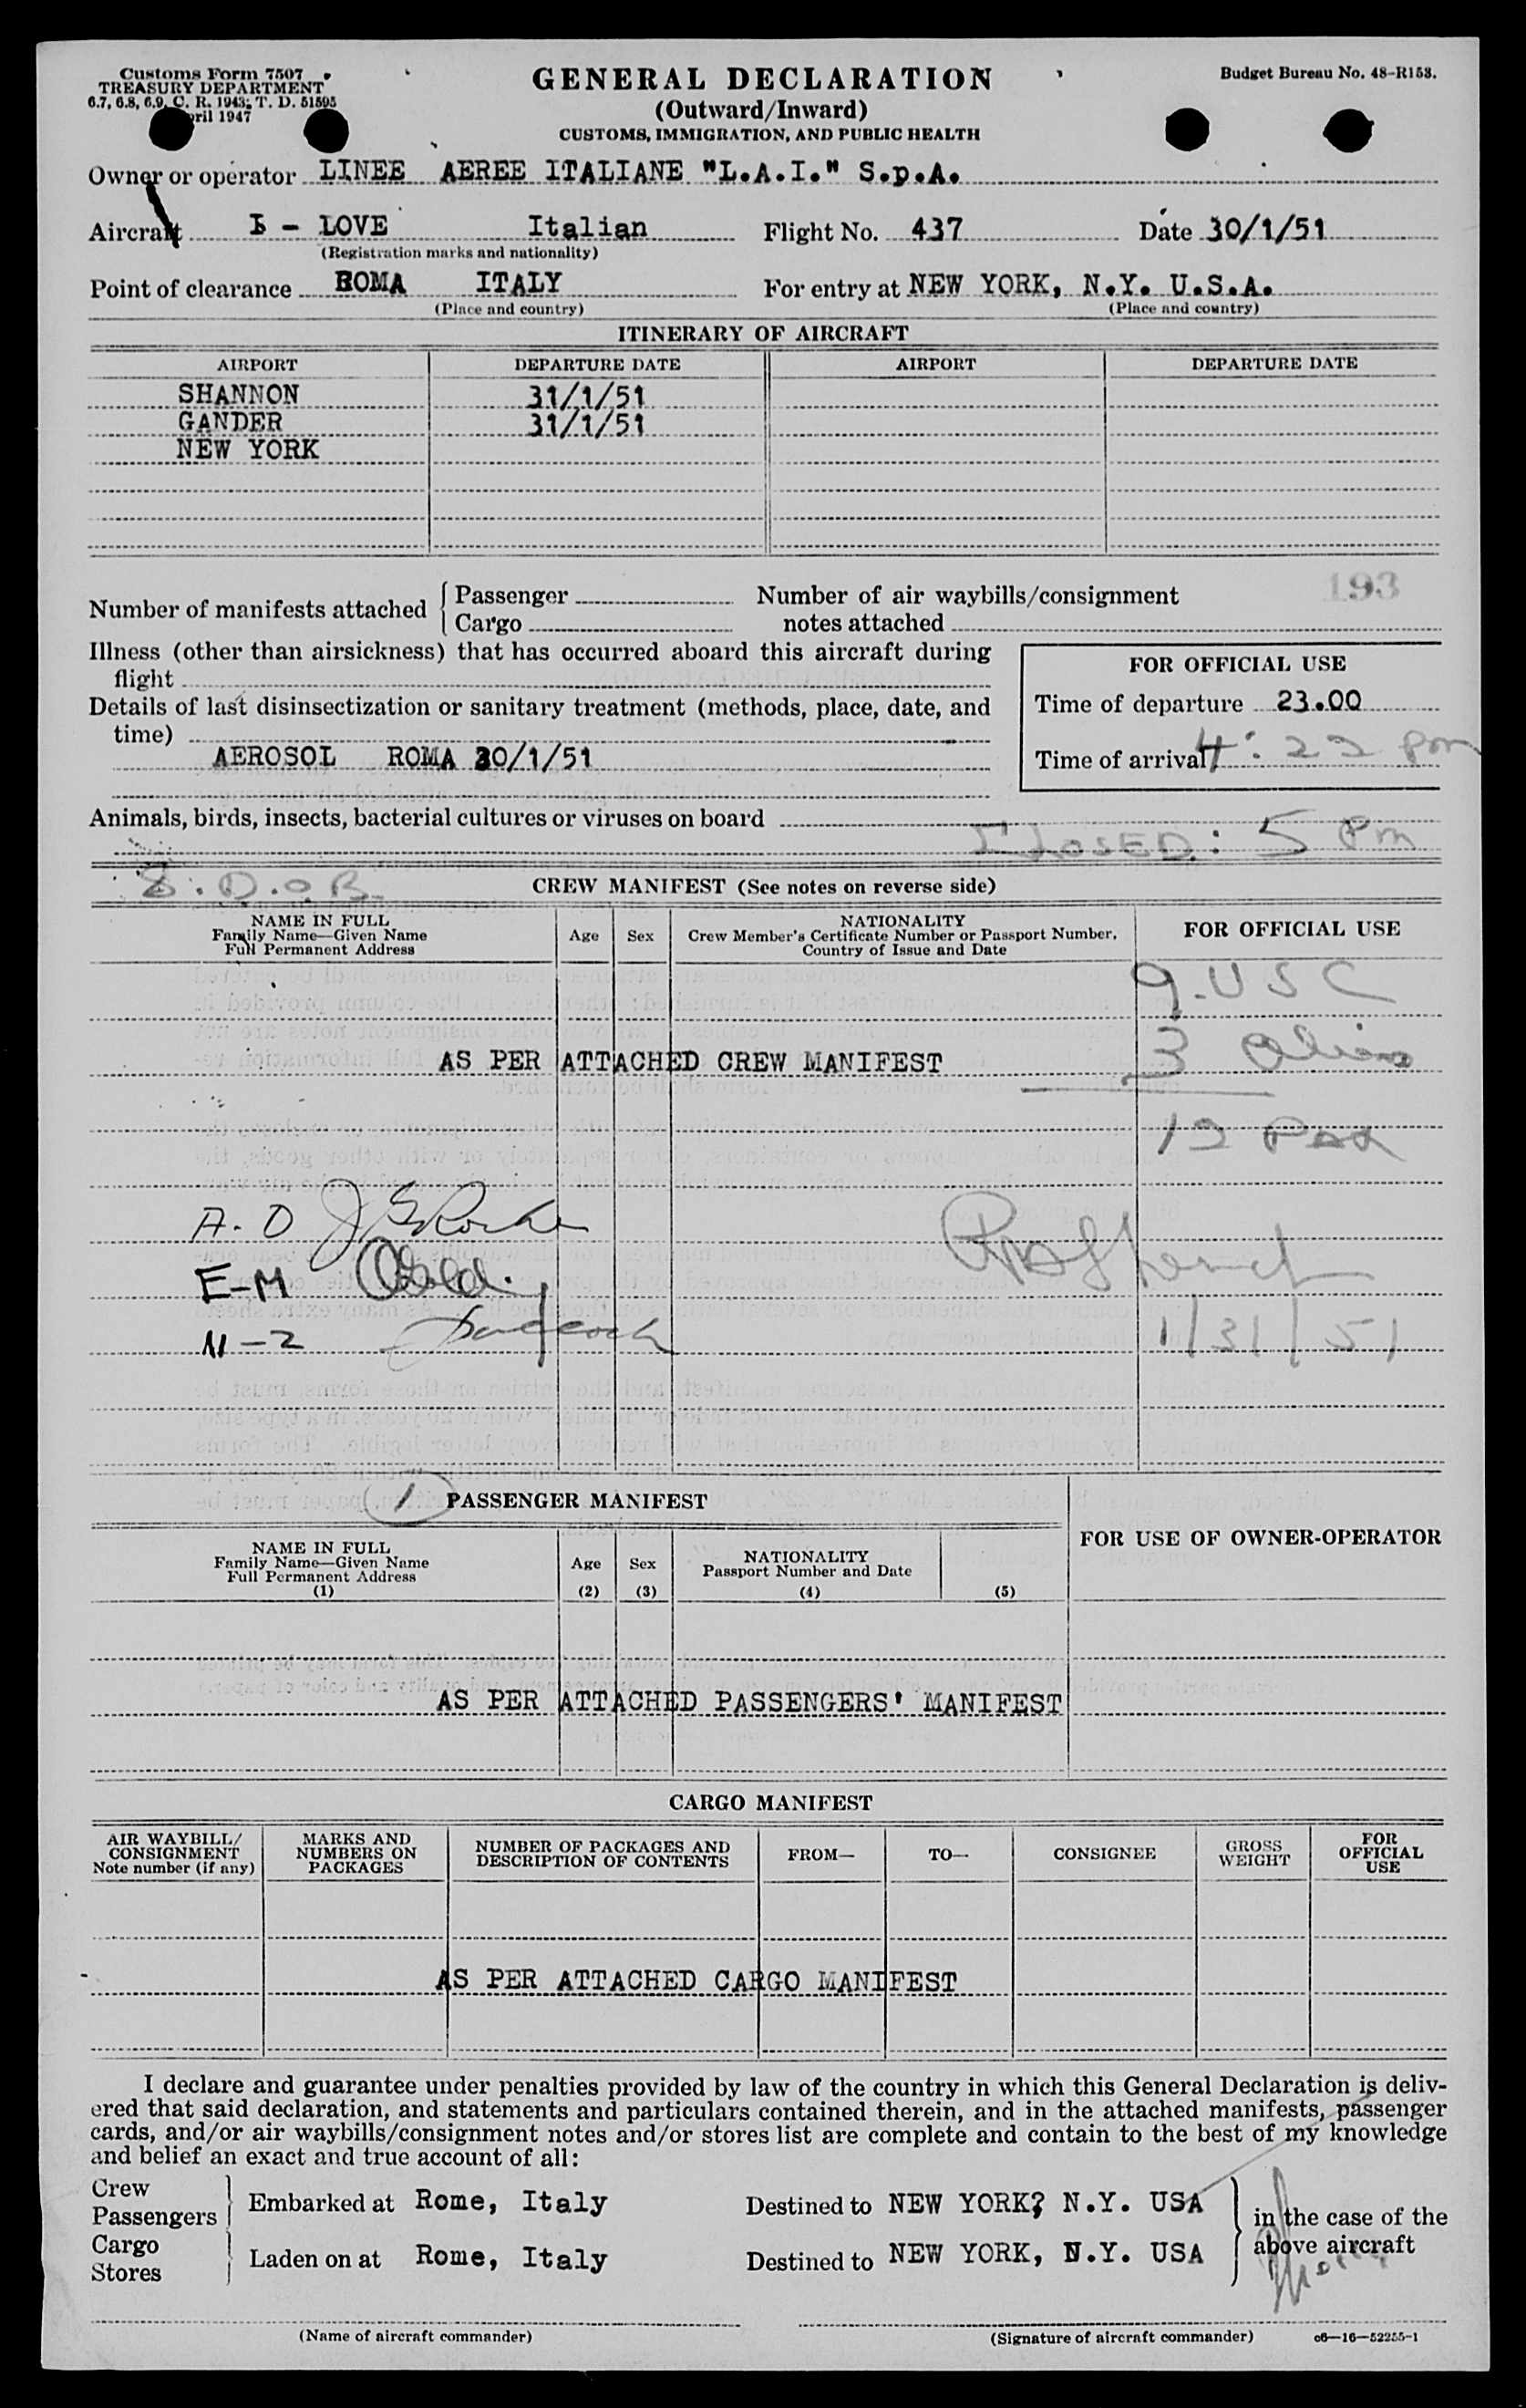 Customs Form 7507
TREASURY DEPARTMENT
6.7, 6.8, 6.9, C. R. 1943; T. D. 51595
ril 1947
GENERAL DECLARATION
(Outward/Inward)
CUSTOMS, IMMIGRATION, AND PUBLIC HEALTH
Budget Bureau No. 48-R153.
Owner or operator LINEE AEREE ITALIANE "L.A.I." S.p.A.
Aircraft I - LOVE Italian Flight No. 437 Date 30/1/51
(Registration marks and nationality)
Point of clearance ROMA ITALY For entry at NEW YORK, N.Y. U.S.A.
(Place and country) (Place and country)
ITINERARY OF AIRCRAFT
AIRPORT DEPARTURE DATE AIRPORT DEPARTURE DATE
SHANNON 31/1/51
GANDER 31/1/51
NEW YORK
Number of manifests attached Passenger Number of air waybills/consignment 193
Cargo notes attached
Illness (other than airsickness) that has occurred aboard this aircraft during
flight
FOR OFFICIAL USE
Details of last disinsectization or sanitary treatment (methods, place, date, and
time)
Time of departure 23.00
AEROSOL ROMA 30/1/51
Time of arrival 4:22 pm
Animals, birds, insects, bacterial cultures or viruses on board
CLOSED: 5 Pm
8.D.O.B.
CREW MANIFEST (See notes on reverse side)
NAME IN FULL
Family Name—Given Name
Full Permanent Address
Age Sex
NATIONALITY
Crew Member's Certificate Number or Passport Number,
Country of Issue and Date
FOR OFFICIAL USE
9. USC
AS PER ATTACHED CREW MANIFEST 3 Aliens
12 Pax
A-D
E-M
N-Z
1/31/51
1 PASSENGER MANIFEST
FOR USE OF OWNER-OPERATOR
NAME IN FULL
Family Name—Given Name
Full Permanent Address
(1)
Age
(2)
Sex
(3)
NATIONALITY
Passport Number and Date
(4) (5)
AS PER ATTACHED PASSENGERS' MANIFEST
CARGO MANIFEST
AIR WAYBILL/
CONSIGNMENT
Note number (if any)
MARKS AND
NUMBERS ON
PACKAGES
NUMBER OF PACKAGES AND
DESCRIPTION OF CONTENTS
FROM—
TO—
CONSIGNEE
GROSS
WEIGHT
FOR
OFFICIAL
USE
AS PER ATTACHED CARGO MANIFEST
I declare and guarantee under penalties provided by law of the country in which this General Declaration is deliv-
ered that said declaration, and statements and particulars contained therein, and in the attached manifests, passenger
cards, and/or air waybills/consignment notes and/or stores list are complete and contain to the best of my knowledge
and belief an exact and true account of all:
Crew
Passengers
Embarked at Rome, Italy Destined to NEW YORK? N.Y. USA
Cargo
Stores
Laden on at Rome, Italy Destined to NEW YORK, N.Y. USA
in the case of the
above aircraft
(Name of aircraft commander) (Signature of aircraft commander) c6—16—52255-1